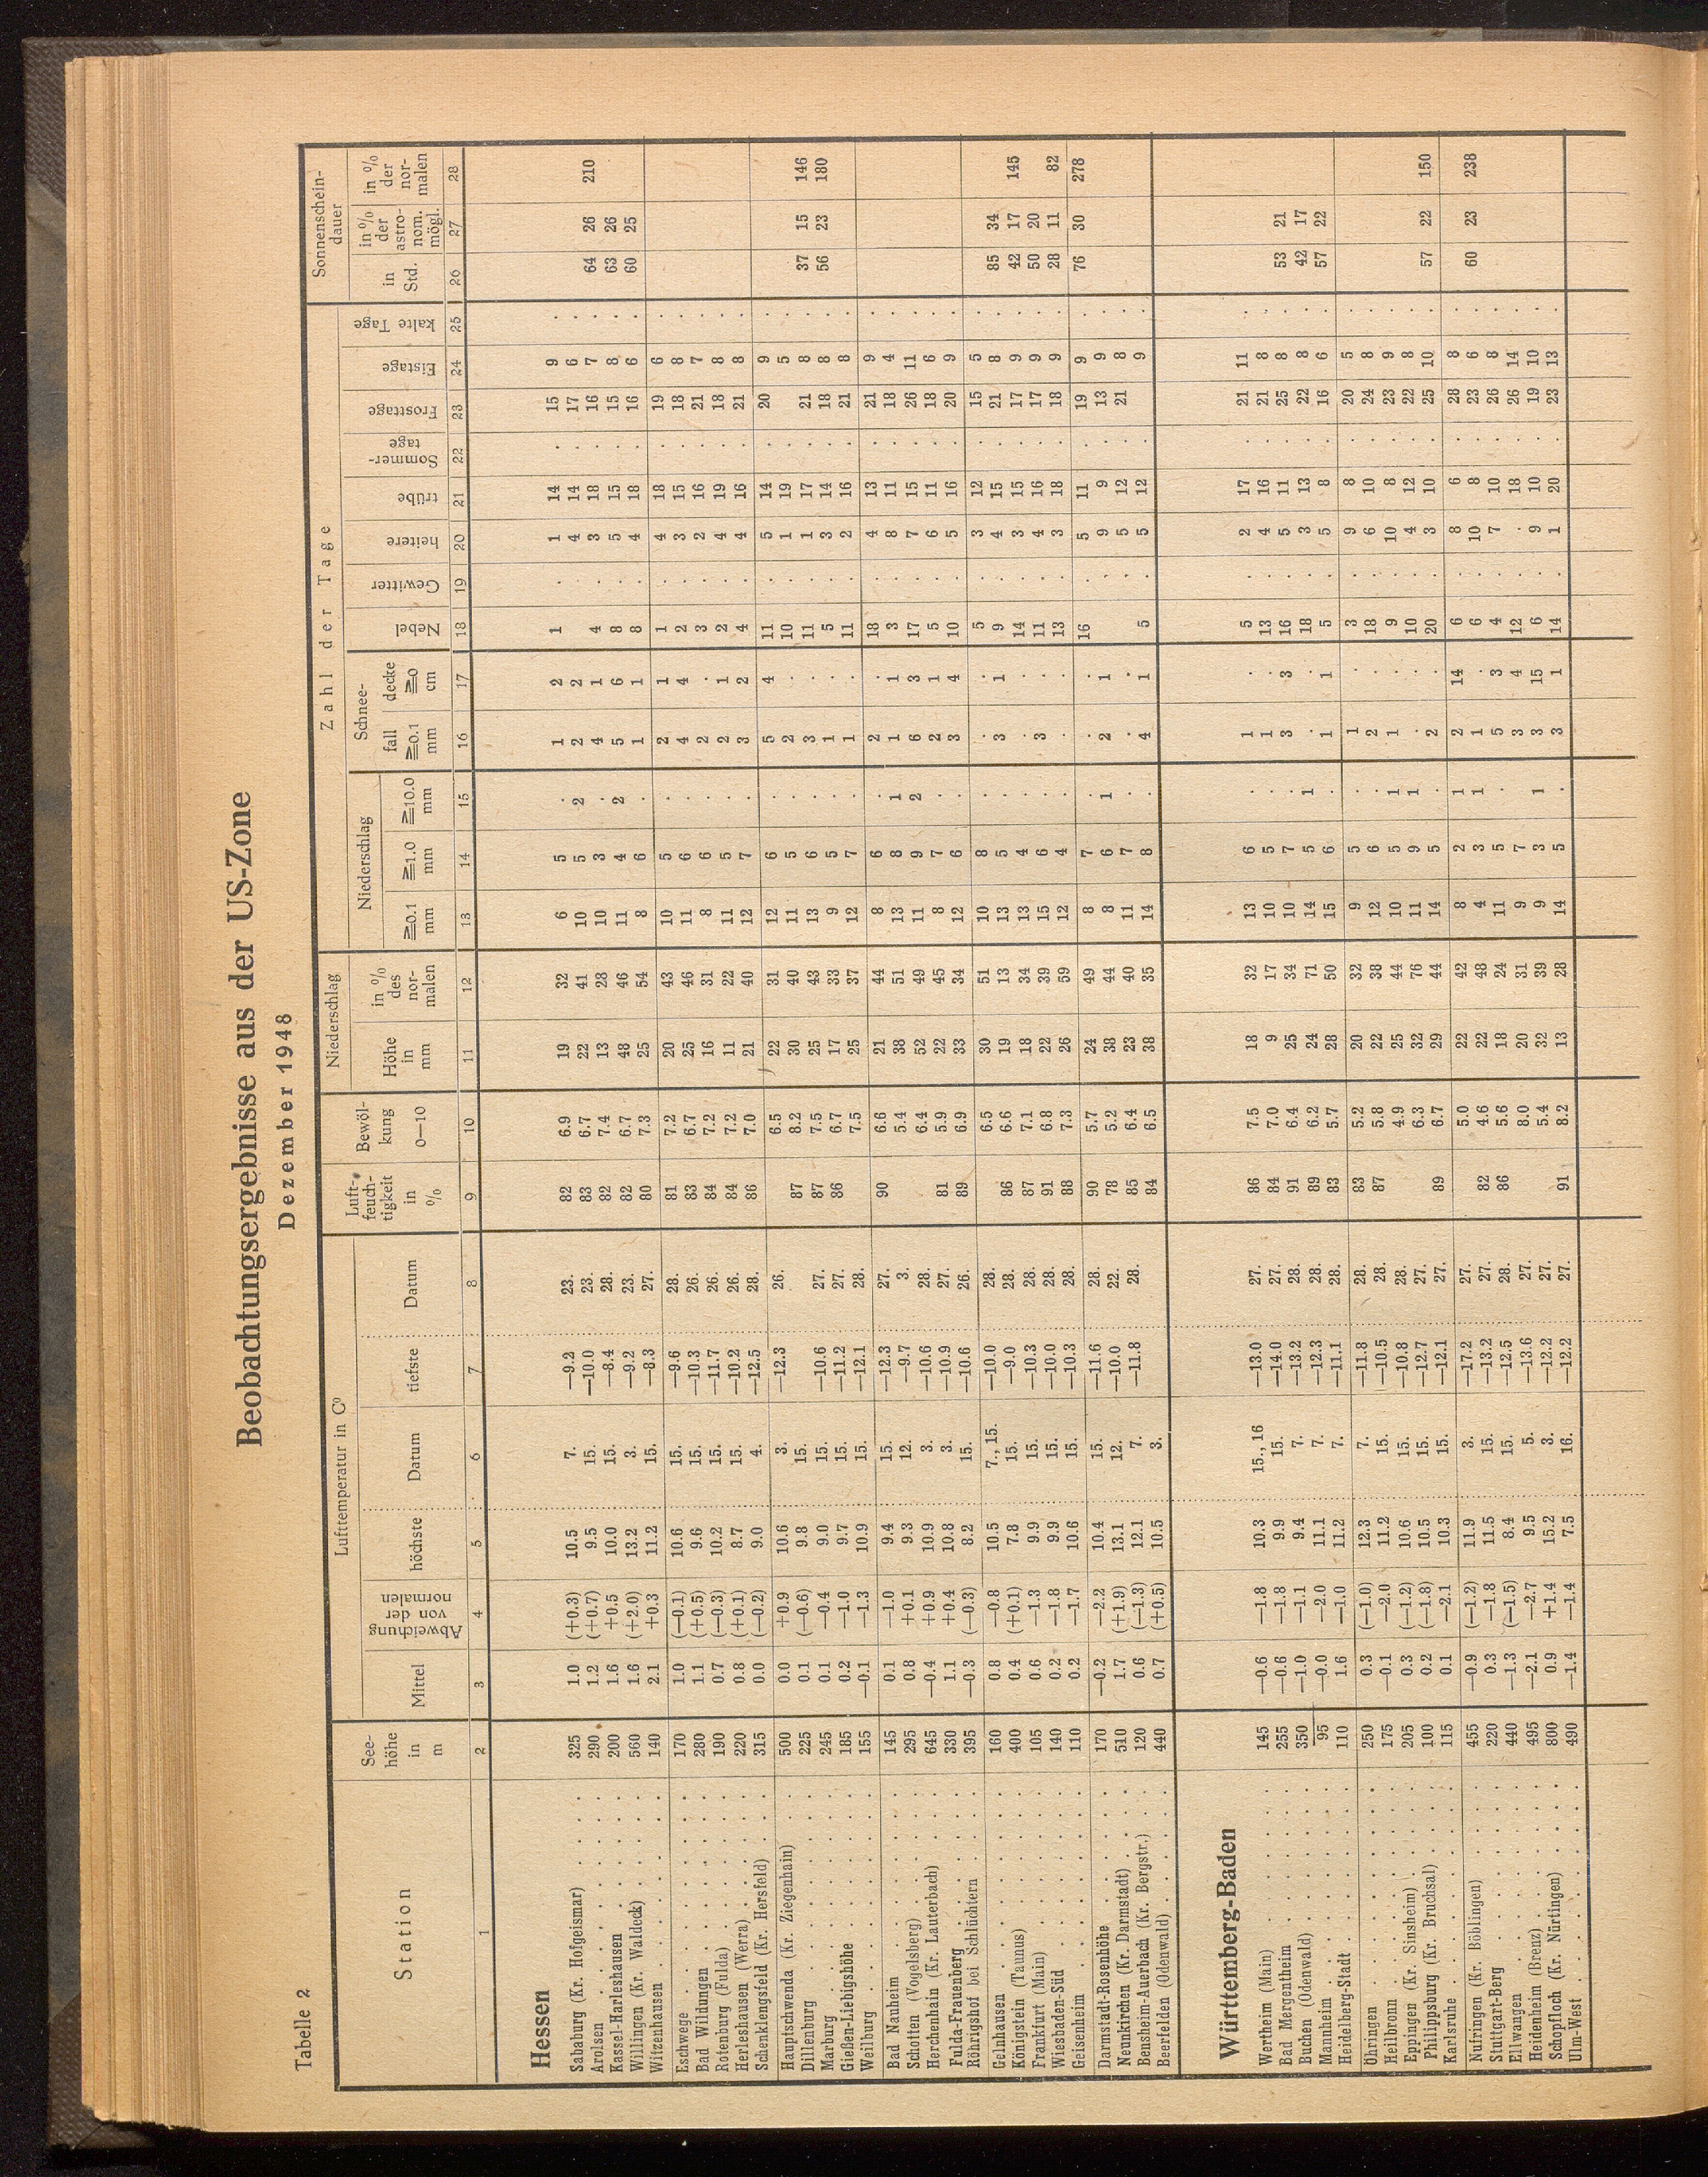 Tabelle 2
Beobachtungsergebnisse aus der US-Zone
Dezember 1948
Station
See-
höhe
in
m
Lufttemperatur in C⁰
Mittel
Abweichung
von der
normalen
höchste
Datum
tiefste
Datum
Luft-
feuch-
tigkeit
in
%
Bewöl-
kung
0—10
Niederschlag
Höhe
in
mm
in %
des
nor-
malen
Zahl der Tage
Niederschlag
≧0.1
mm
≧1.0
mm
≧10.0
mm
Schnee-
fall
≧0.1
mm
decke
≧0
cm
Nebel
Gewitter
heitere
trübe
Sommer-
tage
Frosttage
Eistage
kalte Tage
Sonnenschein-
dauer
in
Std.
in %
der
astro-
nom.
mögl.
in %
der
nor-
malen
1 2 3 4 5 6 7 8 9 10 11 12 13 14 15 16 17 18 19 20 21 22 23 24 25 26 27 28
Hessen
Sababurg (Kr. Hofgeismar) 325 1.0 (+0.3) 10.5 7. —9.2 23. 82 6.9 19 32 6 5 . 1 2 1 . 1 14 . 15 9 .
Arolsen . . . . . 290 1.2 (+0.7) 9.5 15. —10.0 23. 83 6.7 22 41 10 5 2 2 2 . 4 14 . 17 6 .
Kassel-Harleshausen . . . . . 200 1.6 +0.5 10.0 15. —8.4 28. 82 7.4 13 28 10 3 . 4 1 4 . 3 18 . 16 7 . 64 26 210
Willingen (Kr. Waldeck) . . . . 560 1.6 (+2.0) 13.2 3. —9.2 23. 82 6.7 48 46 11 4 2 5 6 8 . 5 15 . 15 8 . 63 26
Witzenhausen . . . . . 140 2.1 +0.3 11.2 15. —8.3 27. 80 7.3 25 54 8 6 . 1 1 8 . 4 18 . 16 6 . 60 25
Eschwege . . . . . 170 1.0 (—0.1) 10.6 15. —9.6 28. 81 7.2 20 43 10 5 . 2 1 1 . 4 18 . 19 6 .
Bad Wildungen . . . . . 280 1.1 (+0.5) 9.6 15. —10.3 26. 83 6.7 25 46 11 6 . 4 4 2 . 3 15 . 18 8 .
Rotenburg (Fulda) . . . . 190 0.7 (—0.3) 10.2 15. —11.7 26. 84 7.2 16 31 8 6 . 2 . 3 . 2 16 . 21 7 .
Herleshausen (Werra) . . . . 220 0.8 (+0.1) 8.7 15. —10.2 26. 84 7.2 11 22 11 5 . 2 1 2 . 4 19 . 18 8 .
Schenklengsfeld (Kr. Hersfeld) . . . 315 0.0 (—0.2) 9.0 4. —12.5 28. 86 7.0 21 40 12 7 . 3 2 4 . 4 16 . 21 8 .
Hauptschwenda (Kr. Ziegenhain) . . 500 0.0 +0.9 10.6 3. —12.3 26. 6.5 22 31 12 6 . 5 4 11 . 5 14 . 20 9 .
Dillenburg . . . . . 225 0.1 (—0.6) 9.8 15. 87 8.2 30 40 11 5 . 2 . 10 . 1 19 . 5 .
Marburg . . . . . 245 0.1 —0.4 9.0 15. —10.6 27. 87 7.5 25 43 13 6 . 3 . 11 . 1 17 . 21 8 . 37 15 146
Gießen-Liebigshöhe . . . . 185 0.2 —1.0 9.7 15. —11.2 27. 86 6.7 17 33 9 5 . 1 . 5 . 3 14 . 18 8 . 56 23 180
Weilburg . . . . . 155 —0.1 —1.3 10.9 15. —12.1 28. 7.5 25 37 12 7 . 1 . 11 . 2 16 . 21 8 .
Bad Nauheim . . . . . 145 0.1 —1.0 9.4 15. —12.3 27. 90 6.6 21 44 8 6 . 2 . 18 . 4 13 . 21 9 .
Schotten (Vogelsberg) . . . . 295 0.8 +0.1 9.3 12. —9.7 3. 5.4 38 51 13 8 1 1 1 3 . 8 11 . 18 4 .
Herchenhain (Kr. Lauterbach) . . . 645 —0.4 +0.9 10.9 3. —10.6 28. 6.4 52 49 11 9 2 6 3 17 . 7 15 . 26 11 .
Fulda-Frauenberg . . . . 330 1.1 +0.4 10.8 3. —10.9 27. 81 5.9 22 45 8 7 . 2 1 5 . 6 11 . 18 6 .
Röhrigshof bei Schlüchtern . . . 395 —0.3 (—0.3) 8.2 15. —10.6 26. 89 6.9 33 34 12 6 . 3 4 10 . 5 16 . 20 9 .
Gelnhausen . . . . . 160 0.8 —0.8 10.5 7., 15. —10.0 28. 6.5 30 51 10 8 . . . 5 . 3 12 . 15 5 .
Königstein (Taunus) . . . . 400 0.4 (+0.1) 7.8 15. —9.0 28. 86 6.6 19 13 13 5 . 3 1 9 . 4 15 . 21 8 . 85 34
Frankfurt (Main) . . . . 105 0.6 —1.3 9.9 15. —10.3 28. 87 7.1 18 34 13 4 . . . 14 . 3 15 . 17 9 . 42 17 145
Wiesbaden-Süd . . . . . 140 0.2 —1.8 9.9 15. —10.0 28. 91 6.8 22 39 15 6 . 3 . 11 . 4 16 . 17 9 . 50 20
Geisenheim . . . . . 110 0.2 —1.7 10.6 15. —10.3 28. 88 7.3 26 59 12 4 . . . 13 . 3 18 . 18 9 . 28 11 82
Darmstadt-Rosenhöhe . . . . 170 —0.2 —2.2 10.4 15. —11.6 28. 90 5.7 24 49 8 7 . . . 16 . 5 11 . 19 9 . 76 30 278
Neunkirchen (Kr. Darmstadt) . . . 510 1.7 (+1.9) 13.1 12. —10.0 22. 78 5.2 38 44 8 6 1 2 1 . 9 9 . 13 9 .
Bensheim-Auerbach (Kr. Bergstr.) . . 120 0.6 (—1.3) 12.1 7. —11.8 28. 85 6.4 23 40 11 7 . . . . 5 12 . 21 8 .
Beerfelden (Odenwald) . . . . 440 0.7 (+0.5) 10.5 3. 84 6.5 38 35 14 8 . 4 1 5 . 5 12 . 9 .
Württemberg-Baden
Wertheim (Main) . . . . 145 —0.6 —1.8 10.3 15., 16 —13.0 27. 86 7.5 18 32 13 6 . 1 . 5 . 2 17 . 21 11 .
Bad Mergentheim . . . . 255 —0.6 —1.8 9.9 15. —14.0 27. 84 7.0 9 17 10 5 . 1 . 13 . 4 16 . 21 8 .
Buchen (Odenwald) . . . . 350 —1.0 —1.1 9.4 7. —13.2 28. 91 6.4 25 34 10 7 . 3 3 16 . 5 11 . 25 8 . 53 21
Mannheim . . . . . 95 —0.0 —2.0 11.1 7. —12.3 28. 89 6.2 24 71 14 5 1 . . 18 . 3 13 . 22 8 . 42 17
Heidelberg-Stadt . . . . 110 1.6 —1.0 11.2 7. —11.1 28. 83 5.7 28 50 15 6 . 1 1 5 . 5 8 . 16 6 . 57 22
Öhringen . . . . . 250 0.3 (—1.0) 12.3 7. —11.8 28. 83 5.2 20 32 9 5 . 1 . 3 . 9 8 . 20 5 .
Heilbronn . . . . . 175 —0.1 —2.0 11.2 15. —10.5 28. 87 5.8 22 38 12 6 . 2 . 18 . 6 10 . 24 8 .
Eppingen (Kr. Sinsheim) . . . . 205 0.3 (—1.2) 10.6 15. —10.8 28. 4.9 25 44 10 5 1 1 . 9 . 10 8 . 23 9 .
Philippsburg (Kr. Bruchsal) . . . 100 0.2 (—1.8) 10.5 15. —12.7 27. 6.3 32 76 11 9 1 . . 10 . 4 12 . 22 8 .
Karlsruhe . . . . . 115 0.1 —2.1 10.3 15. —12.1 27. 89 6.7 29 44 14 5 . 2 . 20 . 3 10 . 25 10 . 57 22 150
Nufringen (Kr. Böblingen) . . . 455 —0.9 (—1.2) 11.9 3. —17.2 27. 5.0 22 42 8 2 1 2 14 6 . 8 6 . 28 8 .
Stuttgart-Berg . . . . . 220 0.3 —1.8 11.5 15. —13.2 27. 82 4.6 22 48 4 3 1 1 . 6 . 10 8 . 23 6 . 60 23 238
Ellwangen . . . . . 440 —1.3 (—1.5) 8.4 15. —12.5 28. 86 5.6 18 24 11 5 . 5 3 4 . 7 10 . 26 8 .
Heidenheim (Brenz) . . . . 495 —2.1 —2.7 9.5 5. —13.6 27. 8.0 20 31 9 7 . 3 4 12 . . 18 . 26 14 .
Schopfloch (Kr. Nürtingen) . . . 800 0.9 +1.4 15.2 3. —12.2 27. 5.4 32 39 9 3 1 3 15 6 . 9 10 . 19 10 .
Ulm-West . . . . . 490 —1.4 —1.4 7.5 16. —12.2 27. 91 8.2 13 28 14 5 . 3 1 14 . 1 20 . 23 13 .